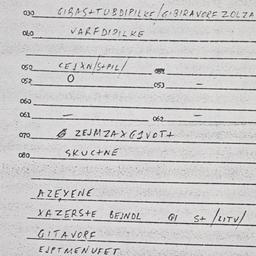 030 GIRAS+TUBDIPILKE/GIBIRAVORF ZOLZA
040 VARFDIPILKE
050 CEJXN/S+PIL/
052 O 053 –
060
061 – 062 –
070 ZEJMZAXGJVOT+
080 SKUC+NE
AZEYENE
XAZERS+E BEJNDL GI S+ /LITV/
GITAVORF
EJPTMENUFET